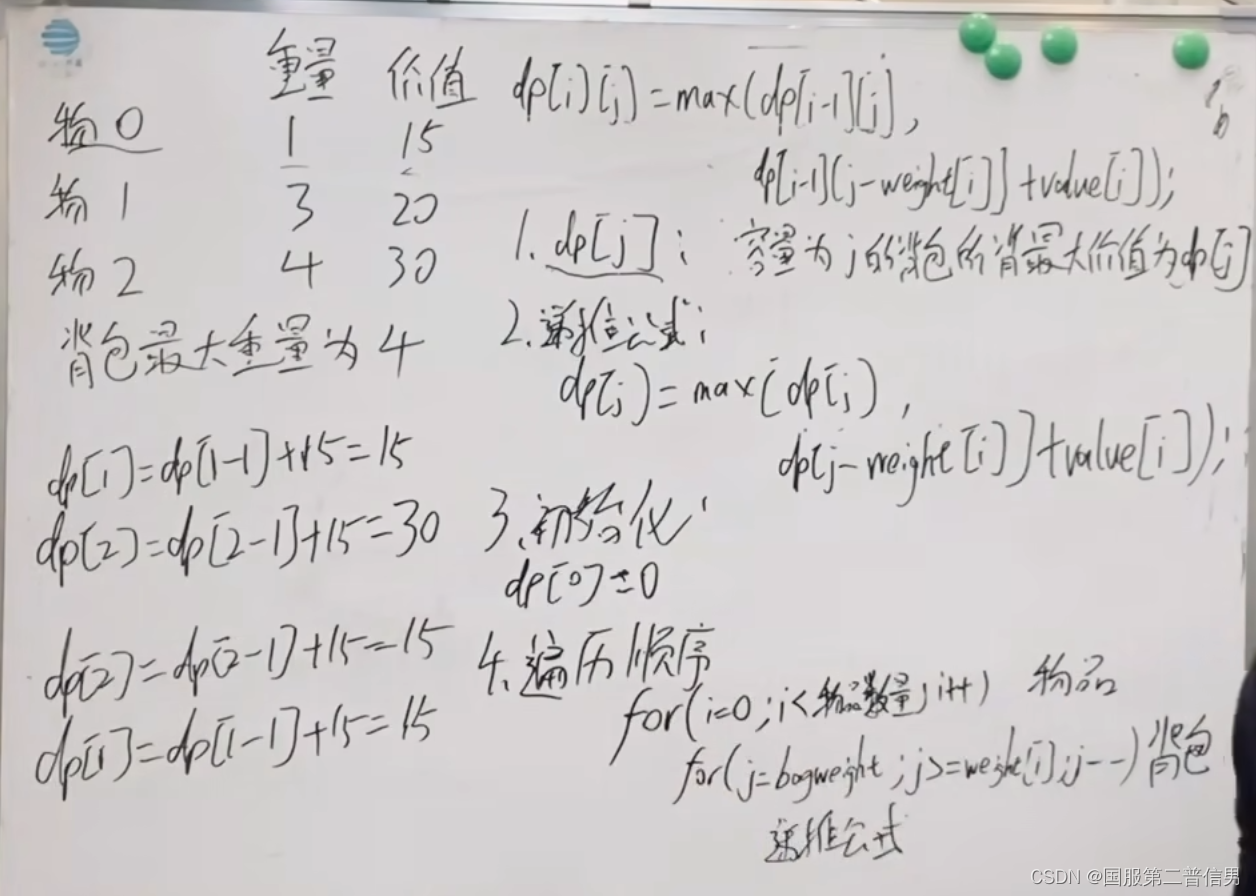 重量 价值
物0 1 15
物1 3 20
物2 4 30
背包最大重量为4
dp[1]=dp[1-1]+15=15
dp[2]=dp[2-1]+15=30
dp[2]=dp[2-1]+15=15
dp[1]=dp[1-1]+15=15
dp[i][j]=max(dp[i-1][j],
dp[i-1][j-weight[i]]+value[i]);
1. dp[j]: 容量为j的背包所背最大价值为dp[j]
2.递推公式:
dp[j]=max(dp[j],
dp[j-weight[i]]+value[i]);
3.初始化:
dp[0]=0
4.遍历顺序
for(i=0;i<物品数量;i++) 物品
for(j=bagweight;j>=weight[i];j--)背包
递推公式
CSDN @国服第二普信男